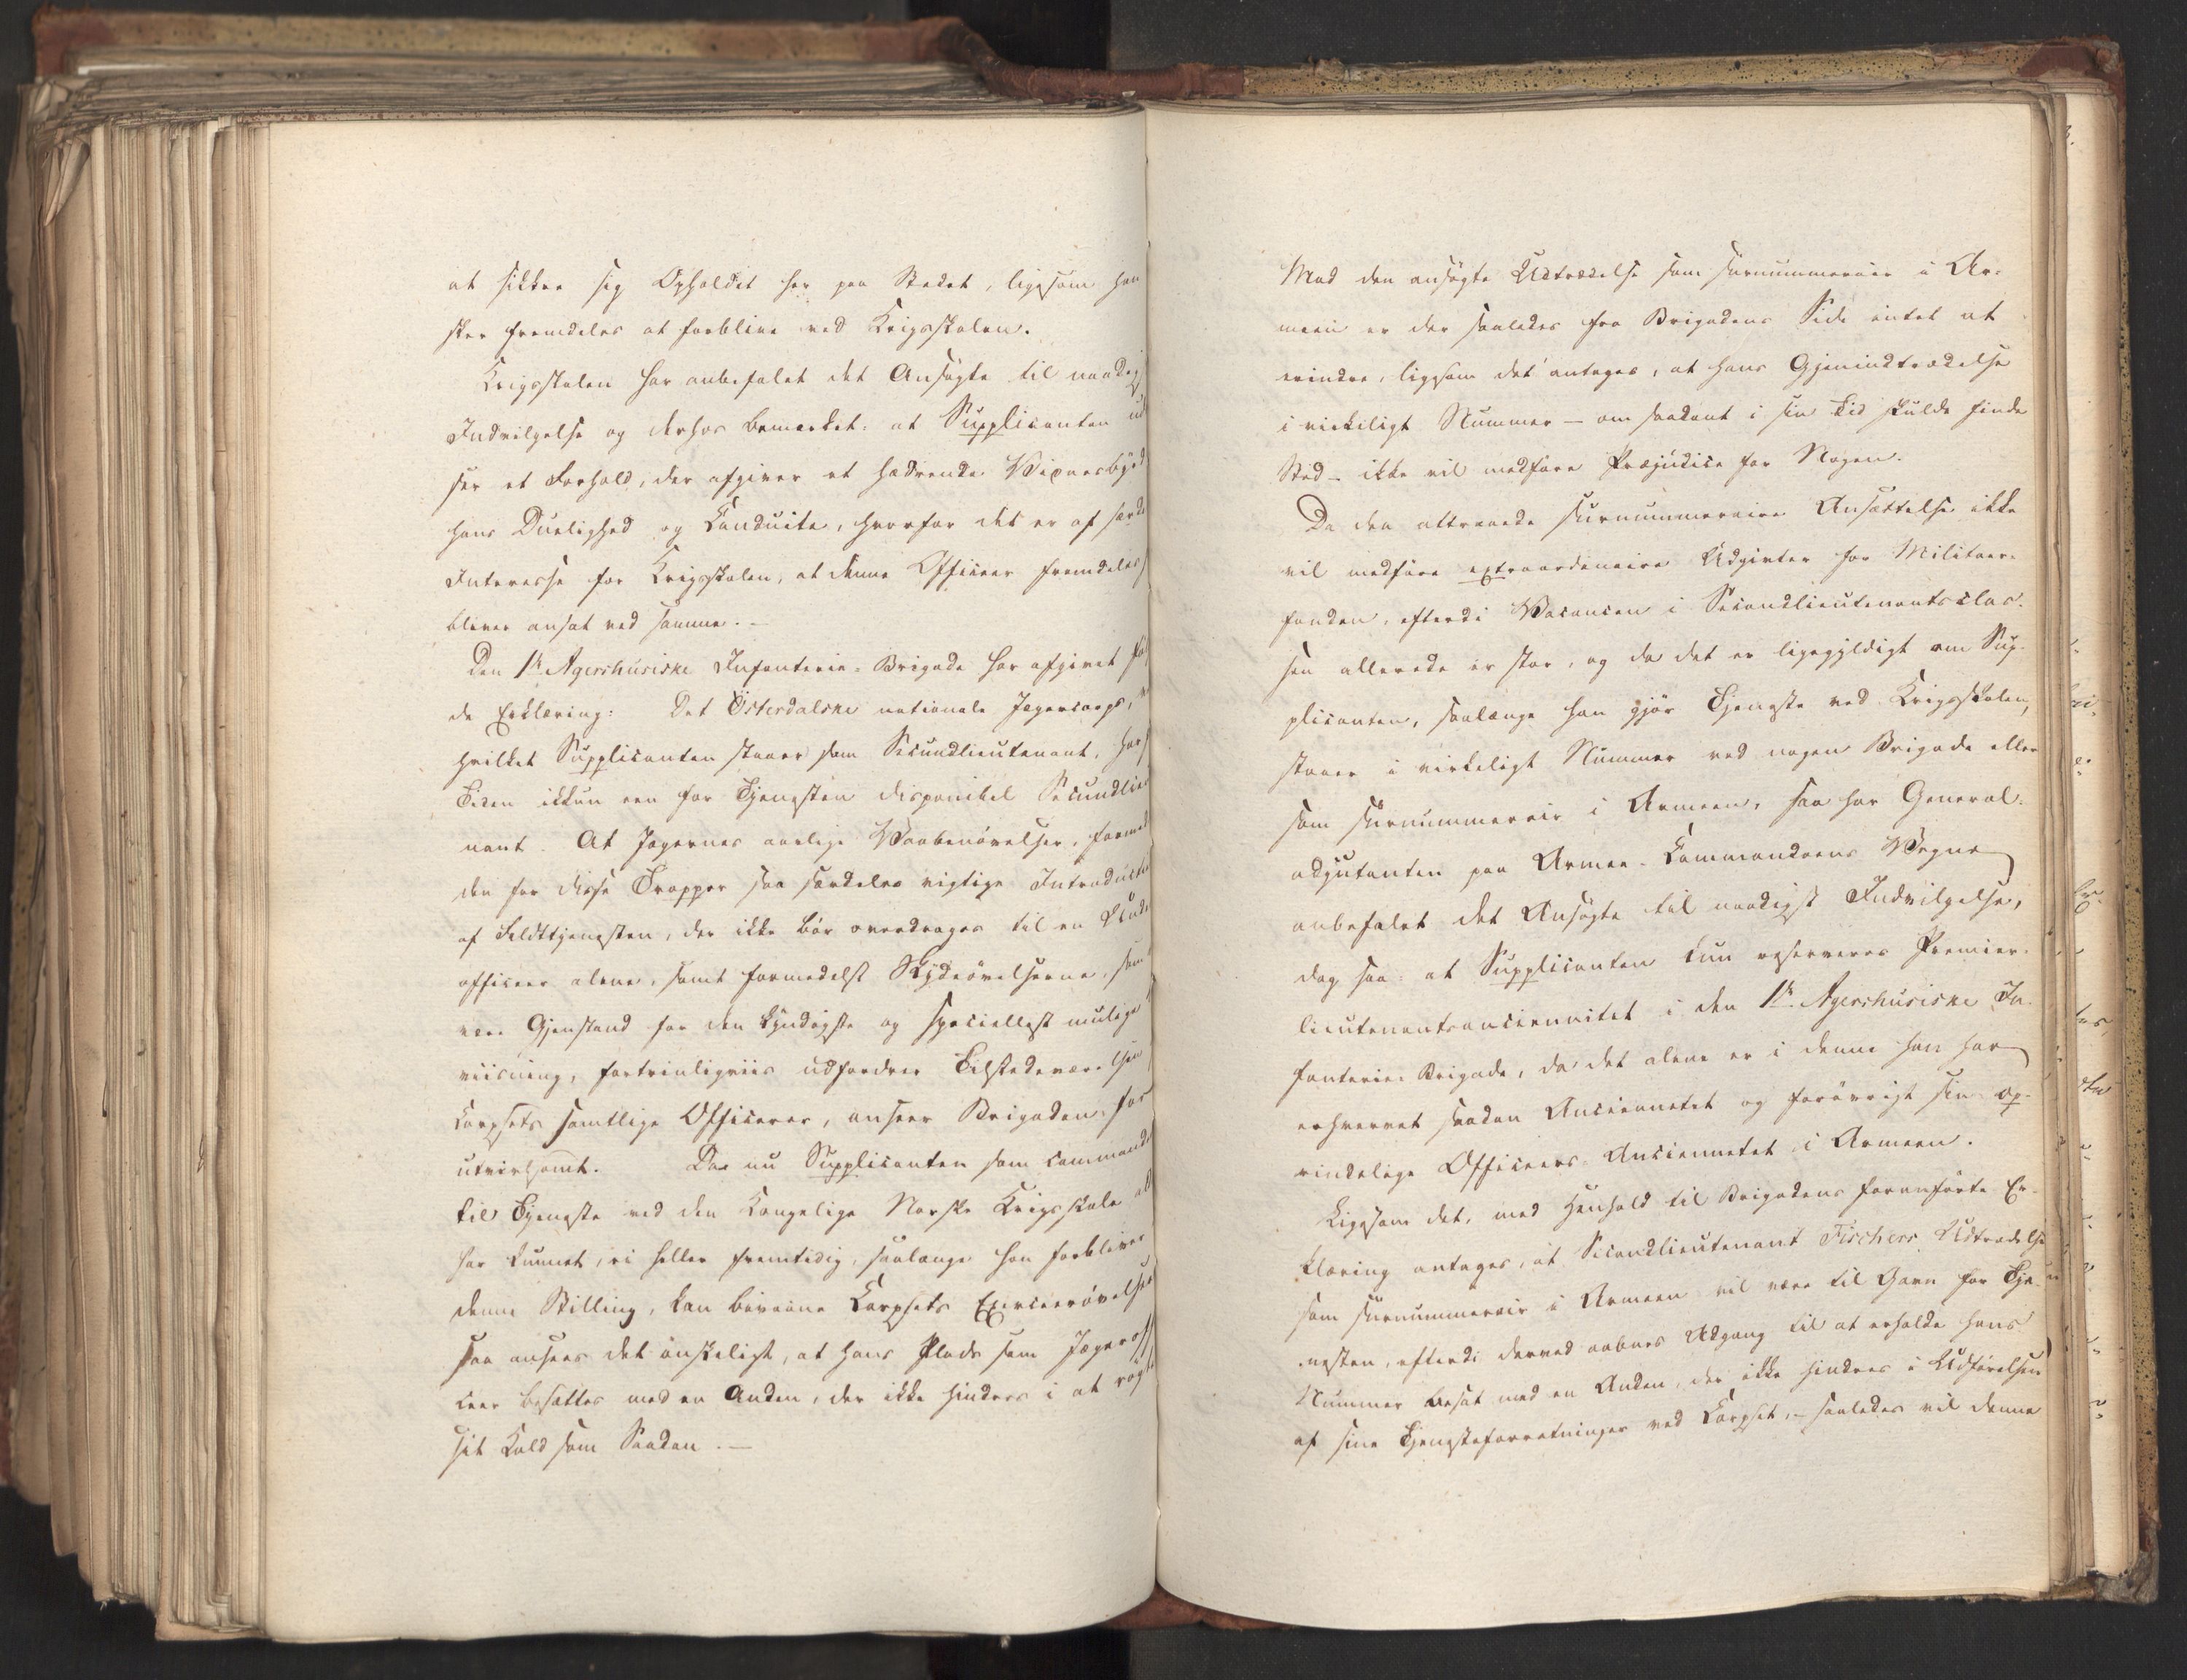 at sikkre sig Opholdet her paa Stedet, ligesom han
sker fremdeles at forblive ved Krigsskolen.
Krigsskolen har anbefalet det Ansøgte til naadig
Indvilgelse og derhos bemærket: at Supplicanten ud
ser et Forhold, der afgiver et hædrende Vidnesbyrd
hans Duelighed og Conduite, hvorfor det er af særde
Interesse for Krigsskolen, at denne Officeer fremdeles
bliver ansat ved samme. –
Den 1ste Agershusiske Infanterie-Brigade har afgivet føl
de Erklæring: Det Østerdalske nationale Jægercorps, v
hvilket Supplicanten staaer som Secundlieutenant, har
Tiden ikkun een for Tjenesten disponibel Secundlieu
nant. At Jægernes aarlige Vaabenøvelser, formed
den for disse Tropper saa særdeles vigtige Introductio
af Feldttjenesten, der ikke bør overdrages til en Unde
officeer alene, samt formedelst Skydeøvelserne, som
være Gjenstand for den kyndigste og specielleste mulige
viisning, fortrinligviis udfordrer Tilstedeværelsen
Corpsets samtlige Officerer, anseer Brigaden for
utvivlsomt. Da nu Supplicanten som commande
til Tjeneste ved den Kongelige Norske Krigsskole al
har kunnet, ei heller fremtidig, saalænge han forbliver
denne Stilling, kan bivaane Corpsets Exerceerøvelser
saa ansees det ønskeligt, at hans Plads som Jægeroffi
ceer besættes med en Anden, der ikke hindres i at røgte
sit Kald som Saadan. –
Mod den ansøgte Udtrædelse som surnummerair i Ar-
meen er der saaledes fra Brigadens Side intet at
erindre, ligesom det antages, at hans Gjenindtrædelse
i virkeligt Nummer – om saadant i sin Tid skulde finde
Sted – ikke vil medføre Præjudice for Nogen.
Da den attraaede surnummeraire Ansættelse ikke
vil medføre extraordinaire Udgivter for Militaer-
fonden, efterdi Vacancen i Secondlieutenantsclas-
sen allerede er stor, og da det er ligegyldigt om Sup-
plicanten, saalænge han gjør Tjeneste ved Krigsskolen,
staaer i virkeligt Nummer ved nogen Brigade eller
som surnummerair i Armeen, saa har General-
adjutanten paa Armee-Commandoens Vegne
anbefalet det Ansøgte til naadigst Indvilgelse,
dog saa: at Supplicanten kun reserveres Premier-
lieutenantsanciennitet i den 1ste Agershusiske In-
fanterie-Brigade, da det alene er i denne han har
erhvervet saadan Anciennetet og forøvrigt sin op-
rindelige Officeers-Anciennetet i Armeen.
Ligesom det, med Henhold til Brigadens foranførte Er-
klæring antages, at Secondlieutenant Fischers Udtrædelse
som surnummerair i Armeen vil være til Gavn for Tje-
nesten, efterdi derved aabnes Adgang til at erholde hans
Nummer besat med en Anden, der ikke hindres i Udførelsen
af sine Tjenesteforretninger ved Corpset, – saaledes vil denne